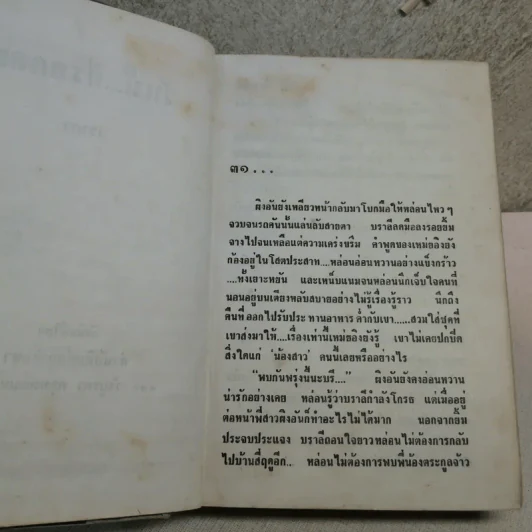 ๓๑...
ผิงอันยังเหลียวหน้ากลับมาโบกมือให้หล่อนไหว ๆ
จวบจนรถคันนั้นแล่นลับสายตา บราลีลดมือลงรอยยิ้ม
จางไปจนเหลือแต่ความเคร่งขรึม คำพูดของเหม่ยอิงยัง
ก้องอยู่ในโสตประสาท....หล่อนอ่อนหวานอย่างแข็งกร้าว
....ทั้งเยาะหยัน และเหน็บแนมจนหล่อนนึกเจ็บใจคนที่
นอนอยู่บนเตียงหลับสบายอย่างไม่รู้เรื่องรู้ราว นึกถึง
คืนที่ออกไปรับประทานอาหารค่ำกับเขา......สวมใส่ชุดที่
เขาส่งมาให้....เรื่องเหล่านี้เหม่ยอิงยังรู้ เขาไม่เคยปกปิด
สิ่งใดแก่ น้องสาว คนนี้เลยหรืออย่างไร
"พบกันพรุ่งนี้นะบรี...." ผิงอันยังคงอ่อนหวาน
น่ารักอย่างเคย หล่อนรู้ว่าบราลีกำลังโกรธ แต่เมื่ออยู่
ต่อหน้าพี่สาวผิงอันก็ทำอะไรไม่ได้มาก นอกจากยิ้ม
ประจบประแจง บราลีถอนใจยาวหล่อนไม่ต้องการกลับ
ไปบ้านสี่ฤดูอีก... หล่อนไม่ต้องการพบพี่น้องตระกูลจ้าว